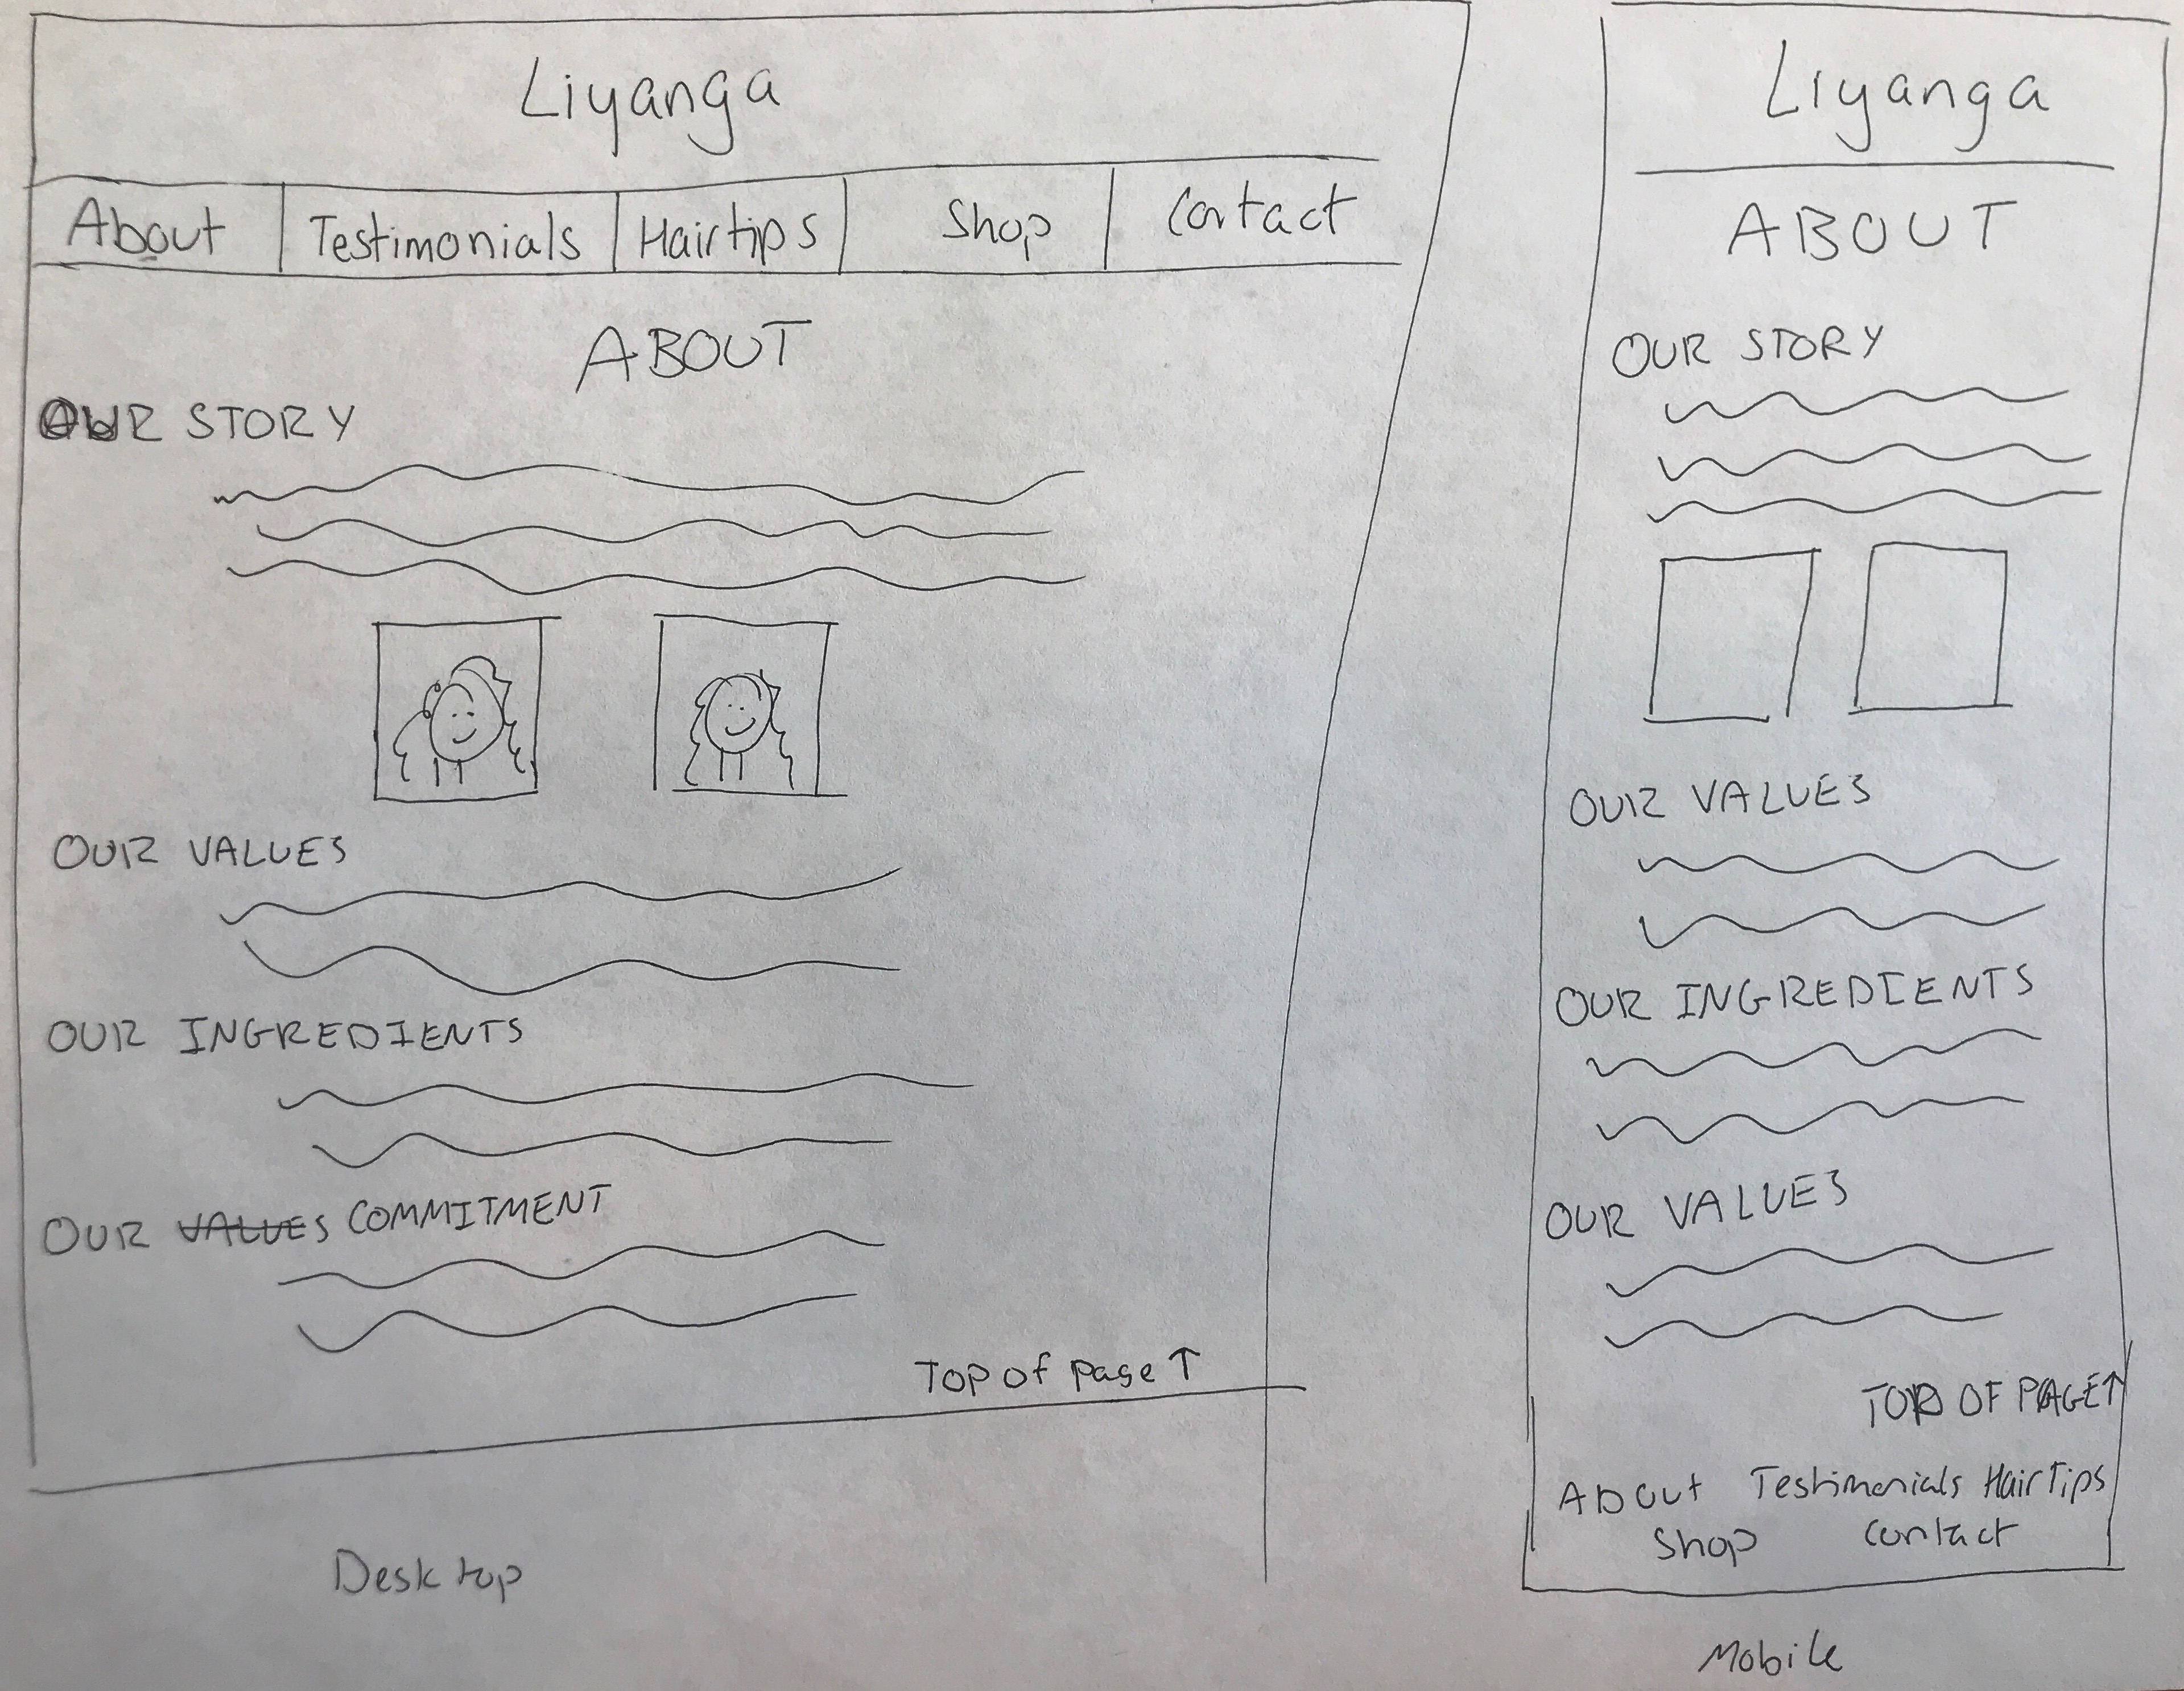 Liyanga
About Testimonials Hairtips Shop Contact
ABOUT
OUR STORY
OUR VALUES
OUR INGREDIENTS
OUR VALUES COMMITMENT
Top of page ↑
Desktop
Liyanga
ABOUT
OUR STORY
OUR VALUES
OUR INGREDIENTS
OUR VALUES
TOP OF PAGE↑
About Testimonials HairTips
Shop Contact
Mobile